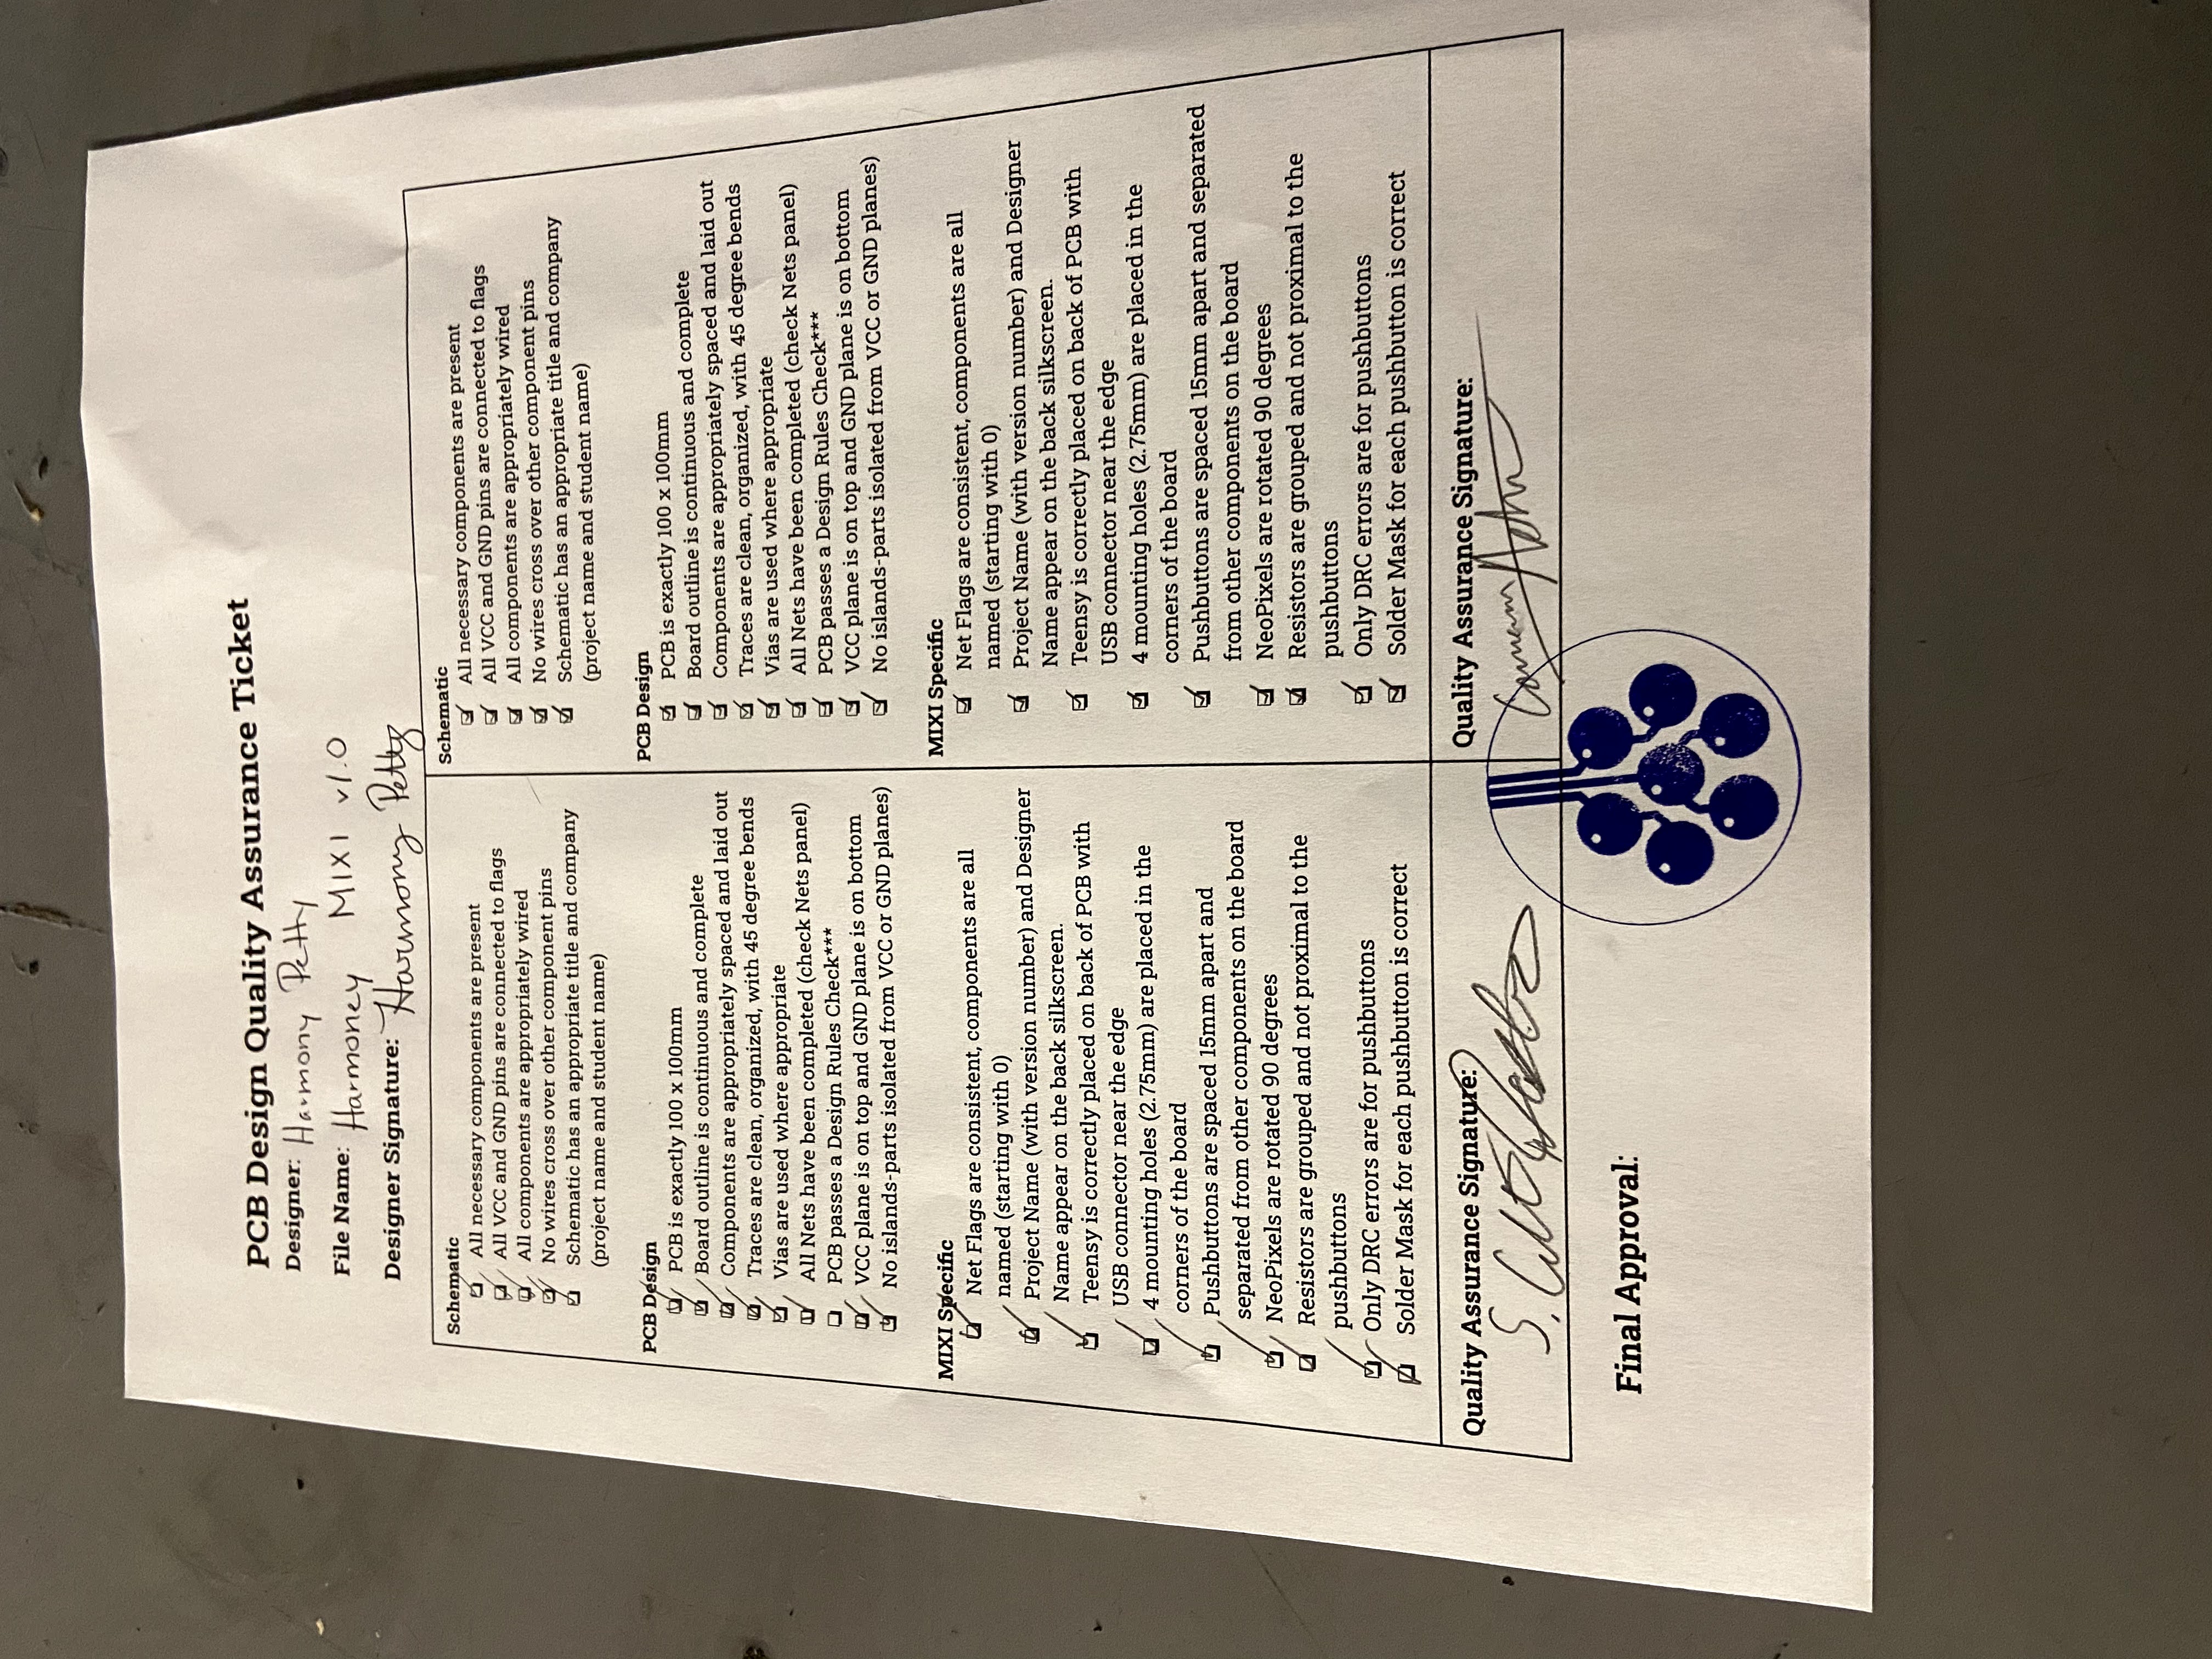 PCB Design Quality Assurance Ticket
Designer: Harmony Petty
File Name: Harmoney MIXI v1.0
Designer Signature: Harmony Petty
Schematic
All necessary components are present
All VCC and GND pins are connected to flags
All components are appropriately wired
No wires cross over other component pins
Schematic has an appropriate title and company
(project name and student name)
PCB Design
PCB is exactly 100 x 100mm
Board outline is continuous and complete
Components are appropriately spaced and laid out
Traces are clean, organized, with 45 degree bends
Vias are used where appropriate
All Nets have been completed (check Nets panel)
PCB passes a Design Rules Check***
VCC plane is on top and GND plane is on bottom
No islands-parts isolated from VCC or GND planes)
MIXI Specific
Net Flags are consistent, components are all
named (starting with 0)
Project Name (with version number) and Designer
Name appear on the back silkscreen.
Teensy is correctly placed on back of PCB with
USB connector near the edge
4 mounting holes (2.75mm) are placed in the
corners of the board
Pushbuttons are spaced 15mm apart and
separated from other components on the board
NeoPixels are rotated 90 degrees
Resistors are grouped and not proximal to the
pushbuttons
Only DRC errors are for pushbuttons
Solder Mask for each pushbutton is correct
Quality Assurance Signature:
Schematic
All necessary components are present
All VCC and GND pins are connected to flags
All components are appropriately wired
No wires cross over other component pins
Schematic has an appropriate title and company
(project name and student name)
PCB Design
PCB is exactly 100 x 100mm
Board outline is continuous and complete
Components are appropriately spaced and laid out
Traces are clean, organized, with 45 degree bends
Vias are used where appropriate
All Nets have been completed (check Nets panel)
PCB passes a Design Rules Check***
VCC plane is on top and GND plane is on bottom
No islands-parts isolated from VCC or GND planes)
MIXI Specific
Net Flags are consistent, components are all
named (starting with 0)
Project Name (with version number) and Designer
Name appear on the back silkscreen.
Teensy is correctly placed on back of PCB with
USB connector near the edge
4 mounting holes (2.75mm) are placed in the
corners of the board
Pushbuttons are spaced 15mm apart and separated
from other components on the board
NeoPixels are rotated 90 degrees
Resistors are grouped and not proximal to the
pushbuttons
Only DRC errors are for pushbuttons
Solder Mask for each pushbutton is correct
Quality Assurance Signature:
Final Approval: